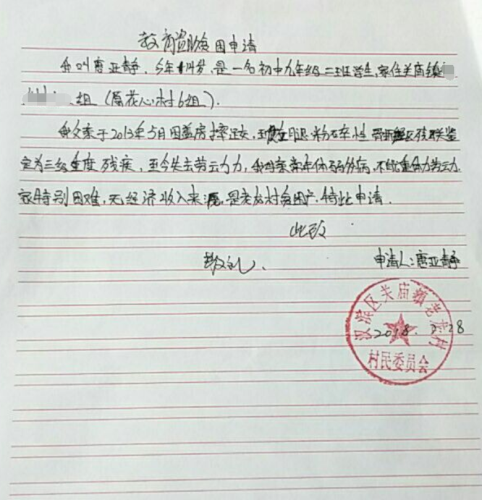 教育资助金申请
我叫唐亚静，今年14岁，是一名初中九年级二班学生，家住关庙镇
组（原花心村6组）.
我父亲于2013年5月因盖房摔
定为三级重度残疾，至今失去劳动力，我母亲常年体弱多病，不能重体力劳动
家特别困难，无经济收入来源，是老龙村贫困户，特此申请.
此致
敬礼.
申请人：唐亚静
2018. 28
汉滨区关庙镇老龙村
村民委员会